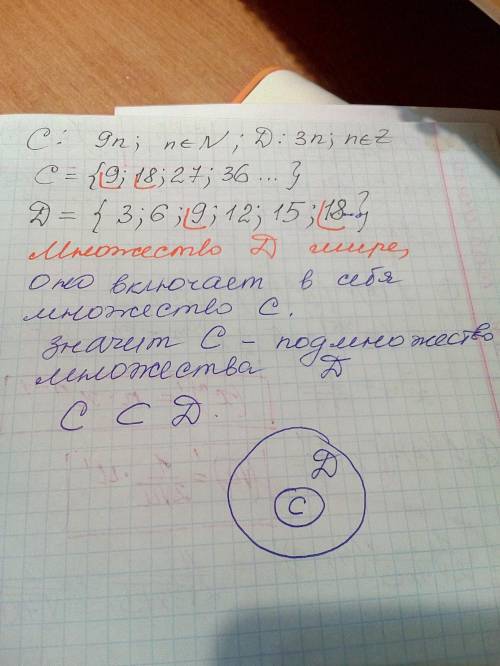 С: 9n; n∈N; Д: 3n; n∈Z
С = {9; 18; 27; 36 ... }
Д = { 3; 6; 9; 12; 15; 18...}
Множество Д шире,
оно включает в себя
множество С.
значит С - подмножество
множества Д
С ⊂ Д.
Д
С